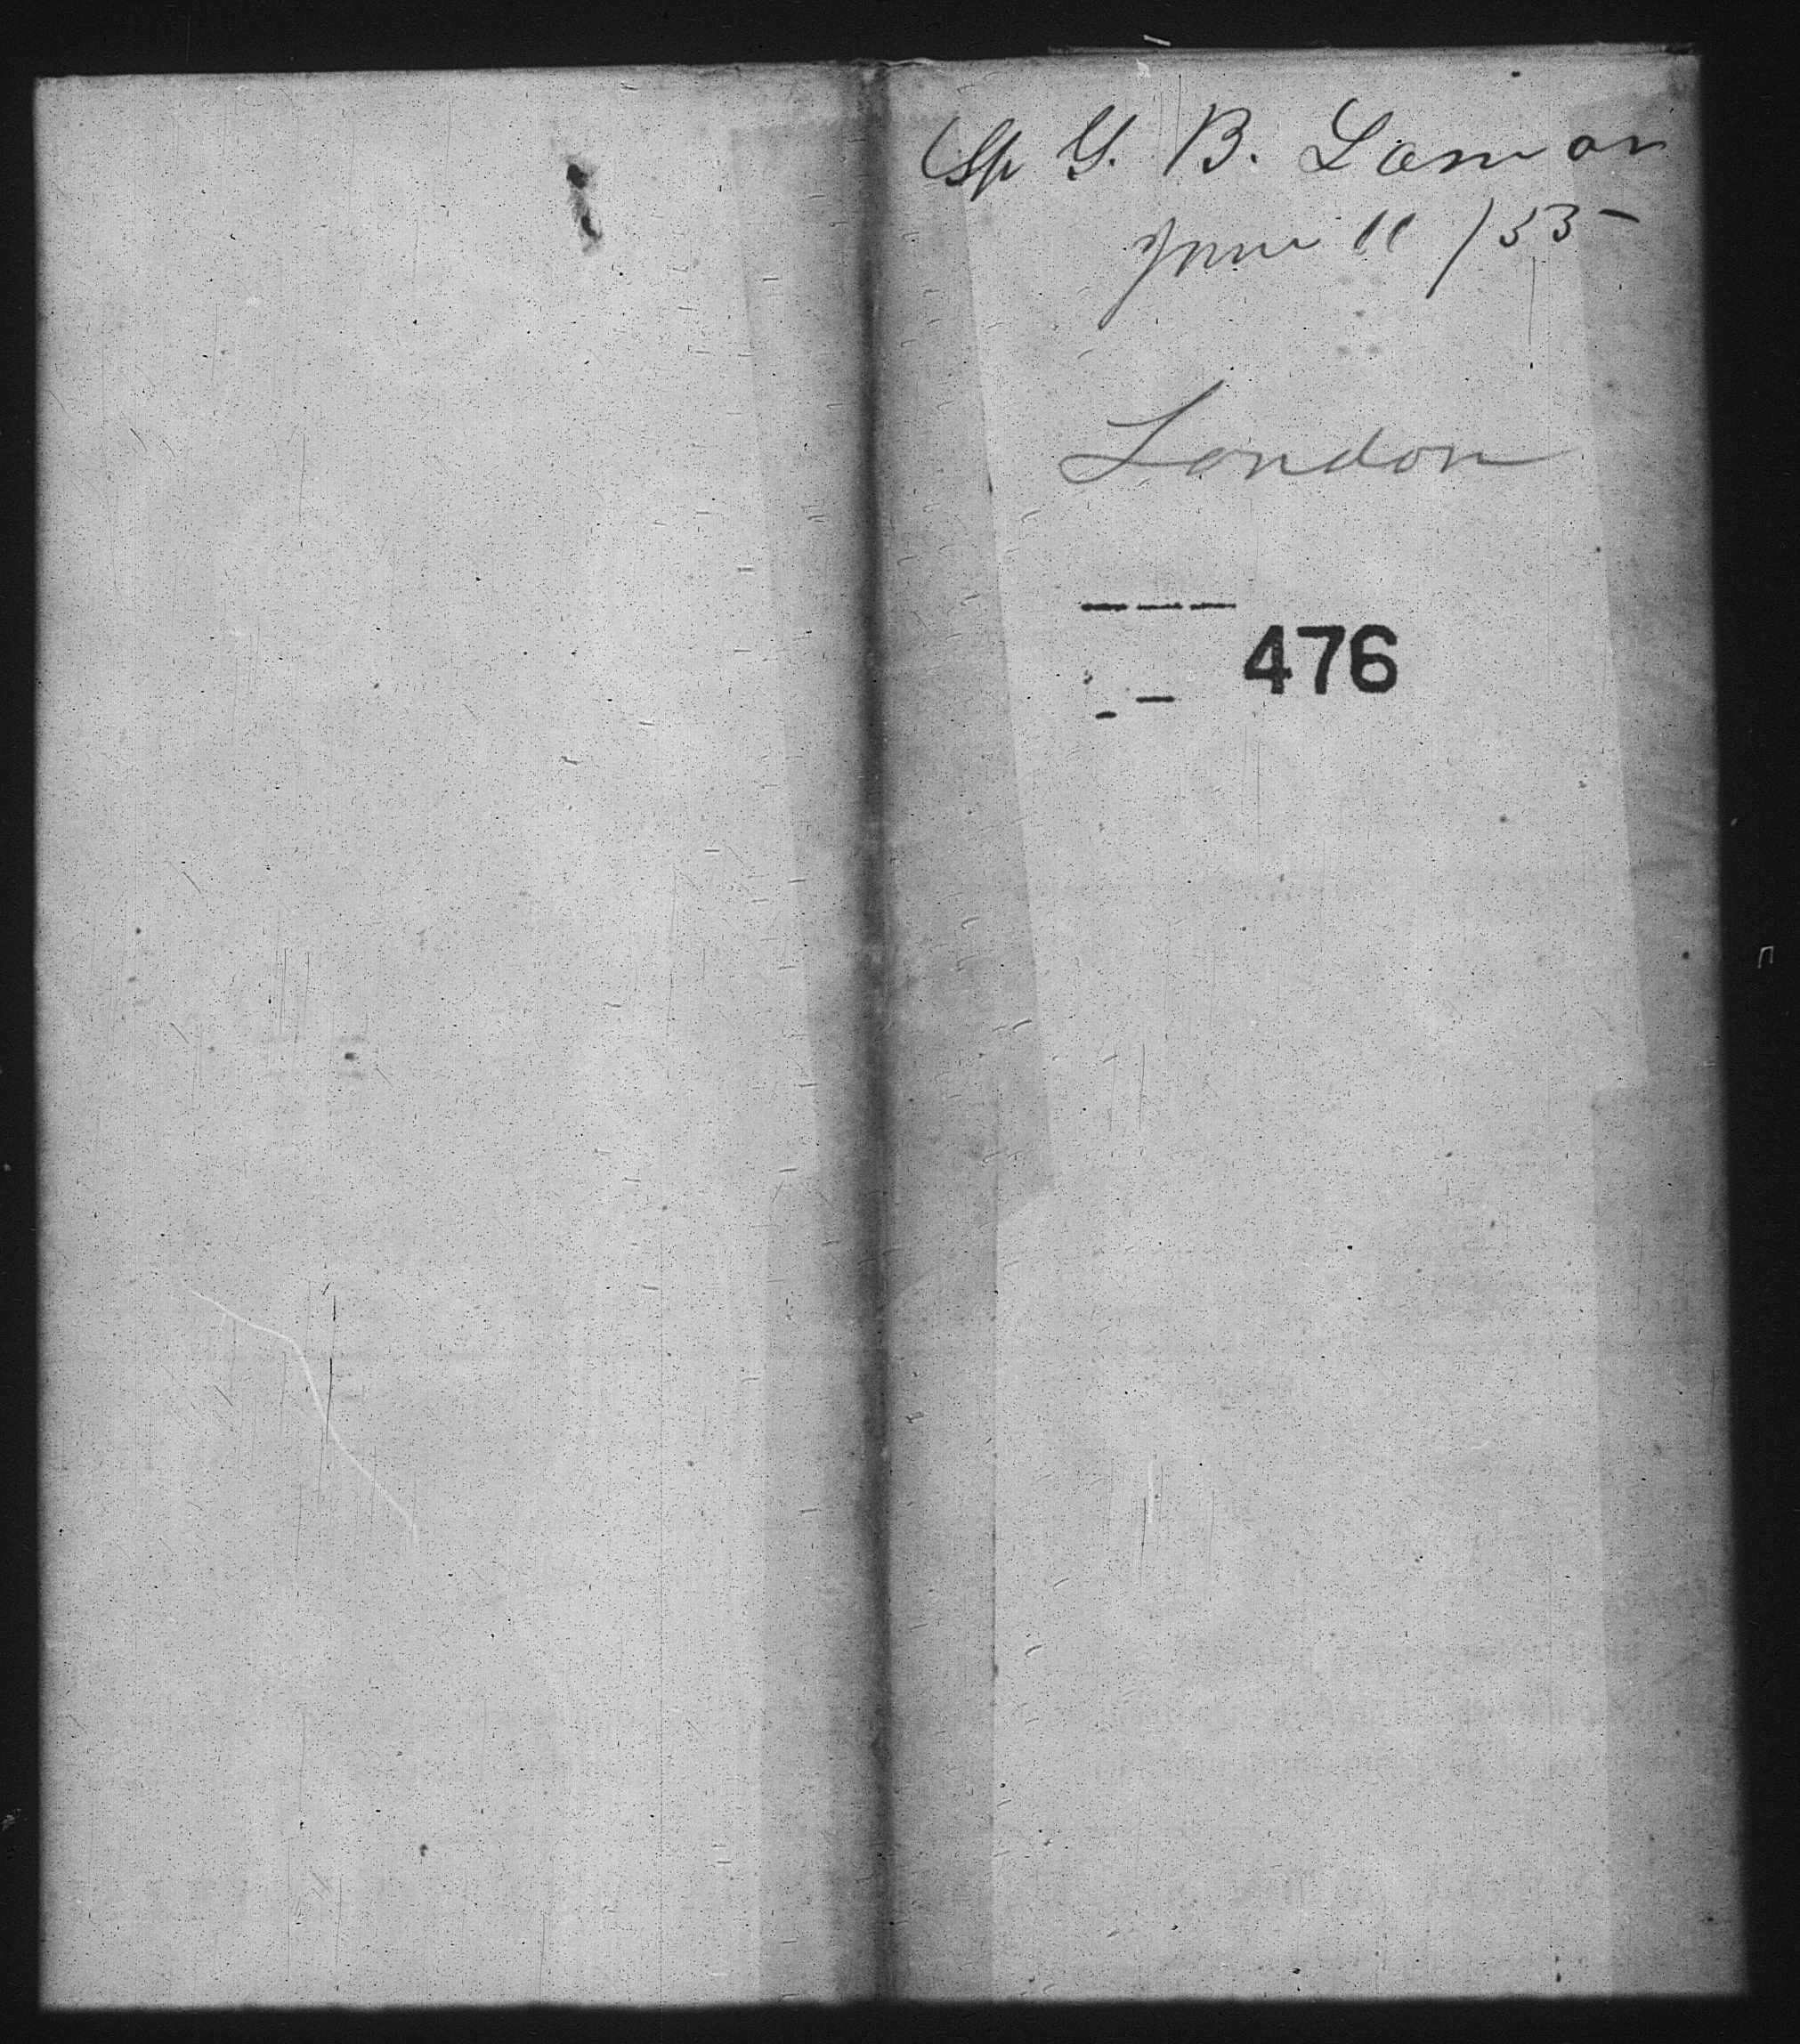 G. B. Lamar
June 11 / 53
London
476